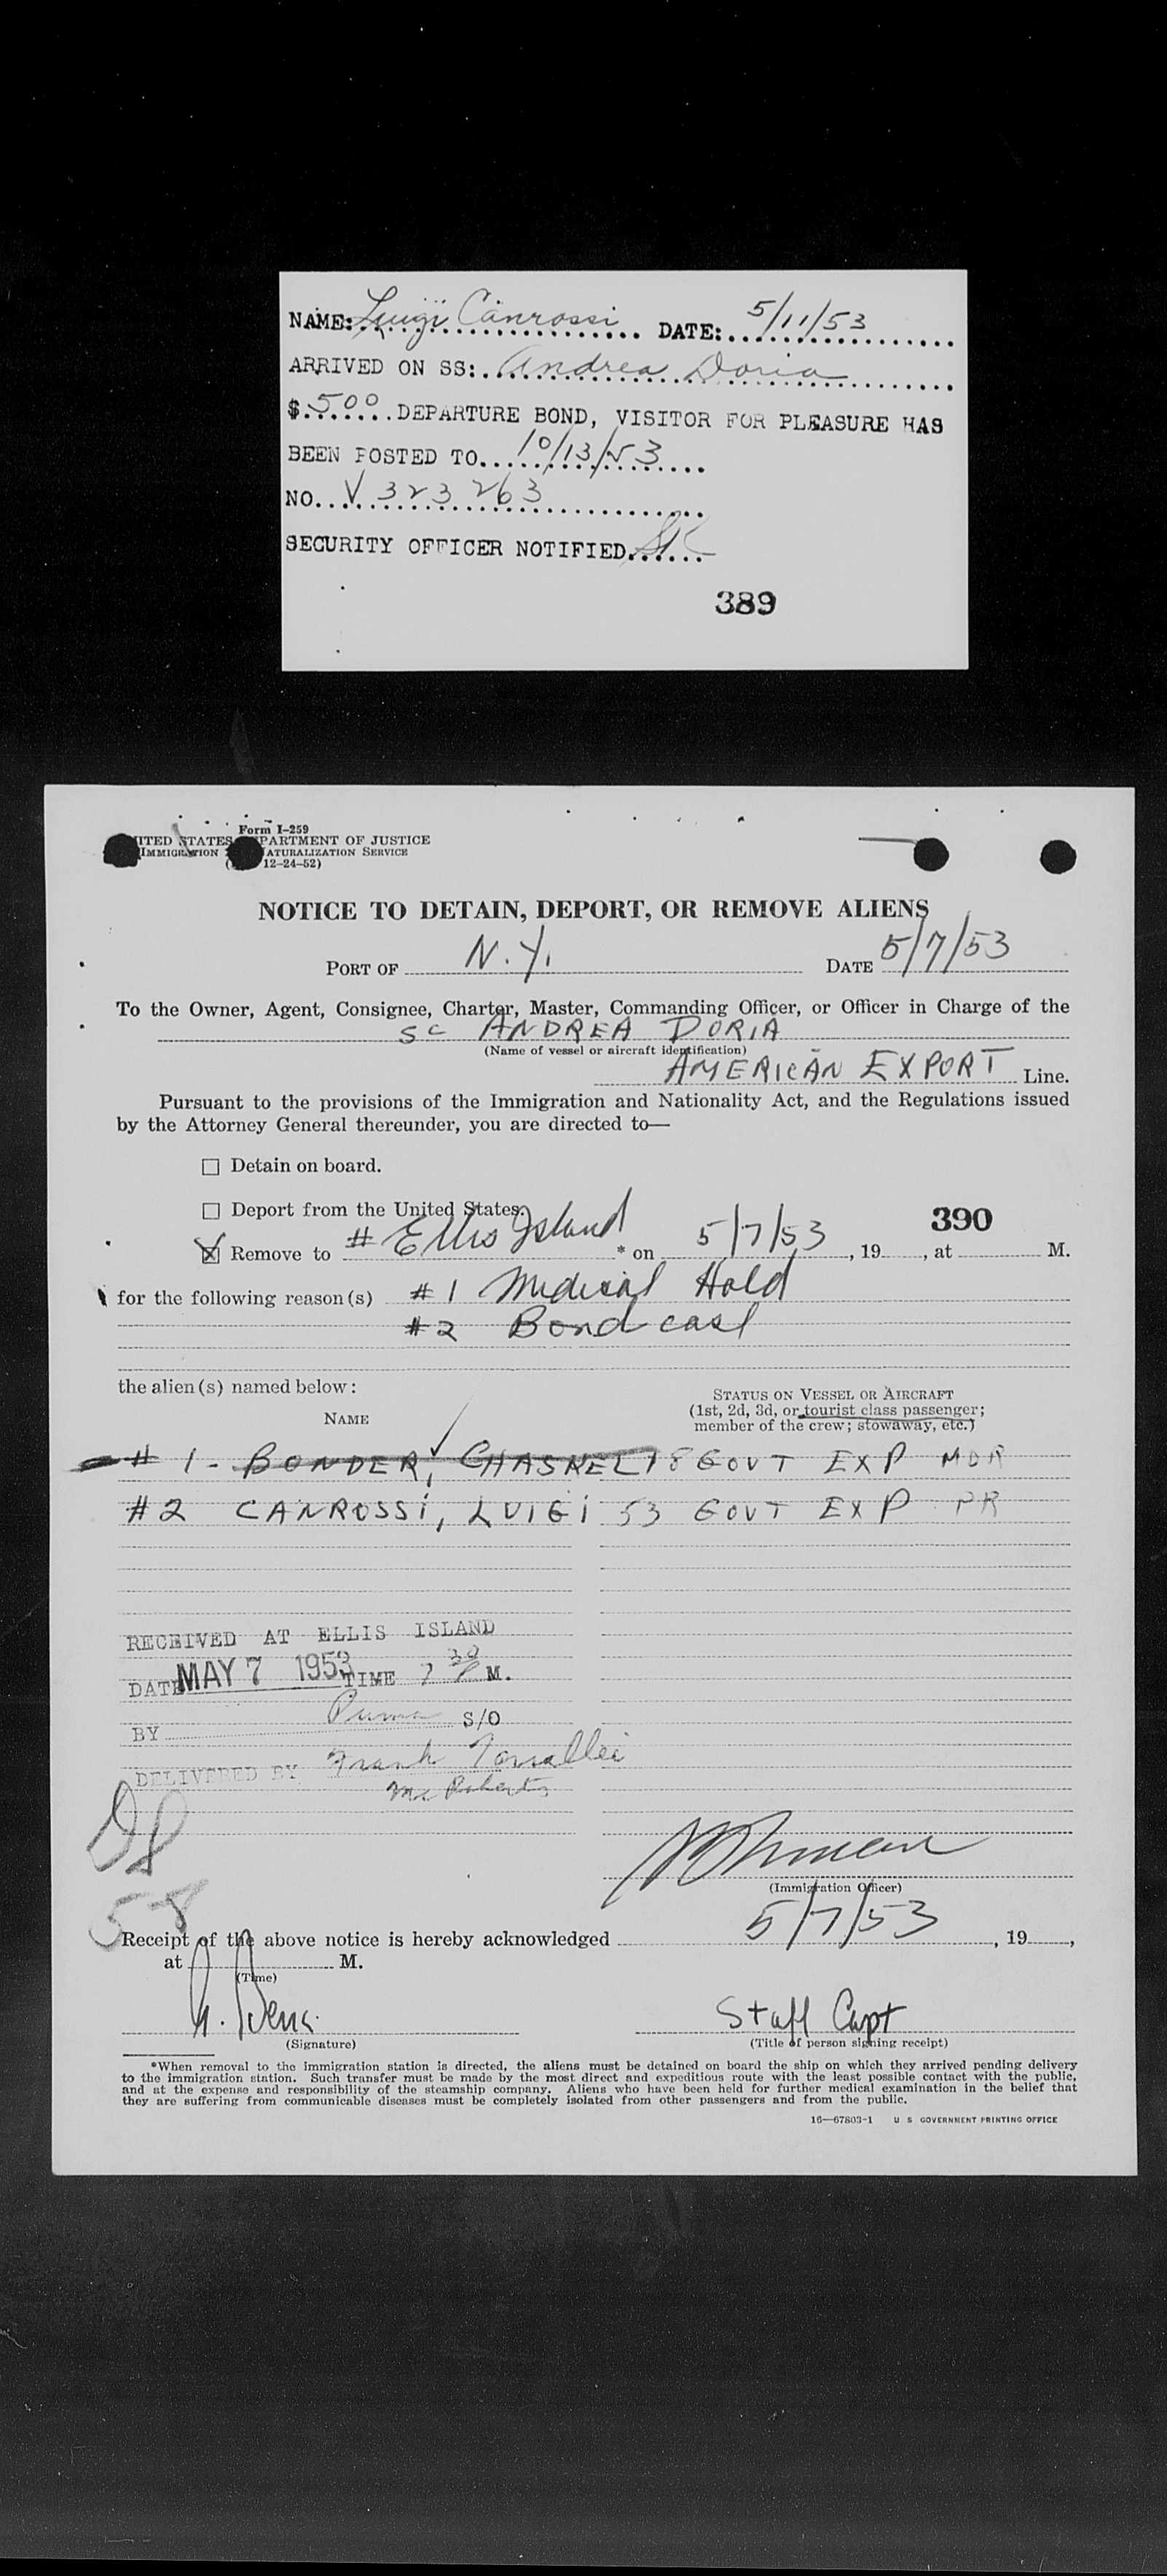 NAME: Luigi Canrossi DATE: 5/11/53
ARRIVED ON SS: Andrea Doria
$ 500 DEPARTURE BOND, VISITOR FOR PLEASURE HAS
BEEN POSTED TO 10/13/53
NO. V 323 263
SECURITY OFFICER NOTIFIED
389
Form I-259
UNITED STATES DEPARTMENT OF JUSTICE
IMMIGRATION NATURALIZATION SERVICE
12-24-52)
NOTICE TO DETAIN, DEPORT, OR REMOVE ALIENS
PORT OF N.Y. DATE 5/7/53
To the Owner, Agent, Consignee, Charter, Master, Commanding Officer, or Officer in Charge of the
ANDREA DORIA
(Name of vessel or aircraft identification)
AMERICAN EXPORT Line.
Pursuant to the provisions of the Immigration and Nationality Act, and the Regulations issued
by the Attorney General thereunder, you are directed to—
☐ Detain on board.
☐ Deport from the United States.
390
☒ Remove to # Ellis Island * on 5/7/53, 19, at M.
for the following reason(s) #1 Medical Hold
#2 Bond case
the alien(s) named below:
STATUS ON VESSEL OR AIRCRAFT
(1st, 2d, 3d, or tourist class passenger;
member of the crew; stowaway, etc.)
NAME
#1 - BONDER, CHASKEL 18 GOVT EXP MDR
#2 CANROSSI, LUIGI 53 GOVT EXP PR
RECEIVED AT ELLIS ISLAND
DATE MAY 7 1953 TIME 7 30 P M.
BY S/O
DELIVERED BY Frank
Mc Roberts
58
(Immigration Officer)
Receipt of the above notice is hereby acknowledged 5/7/53, 19,
at M.
(Time)
Staff Capt
(Signature) (Title of person signing receipt)
*When removal to the immigration station is directed, the aliens must be detained on board the ship on which they arrived pending delivery
to the immigration station. Such transfer must be made by the most direct and expeditious route with the least possible contact with the public,
and at the expense and responsibility of the steamship company. Aliens who have been held for further medical examination in the belief that
they are suffering from communicable diseases must be completely isolated from other passengers and from the public.
16—67803-1 U S GOVERNMENT PRINTING OFFICE